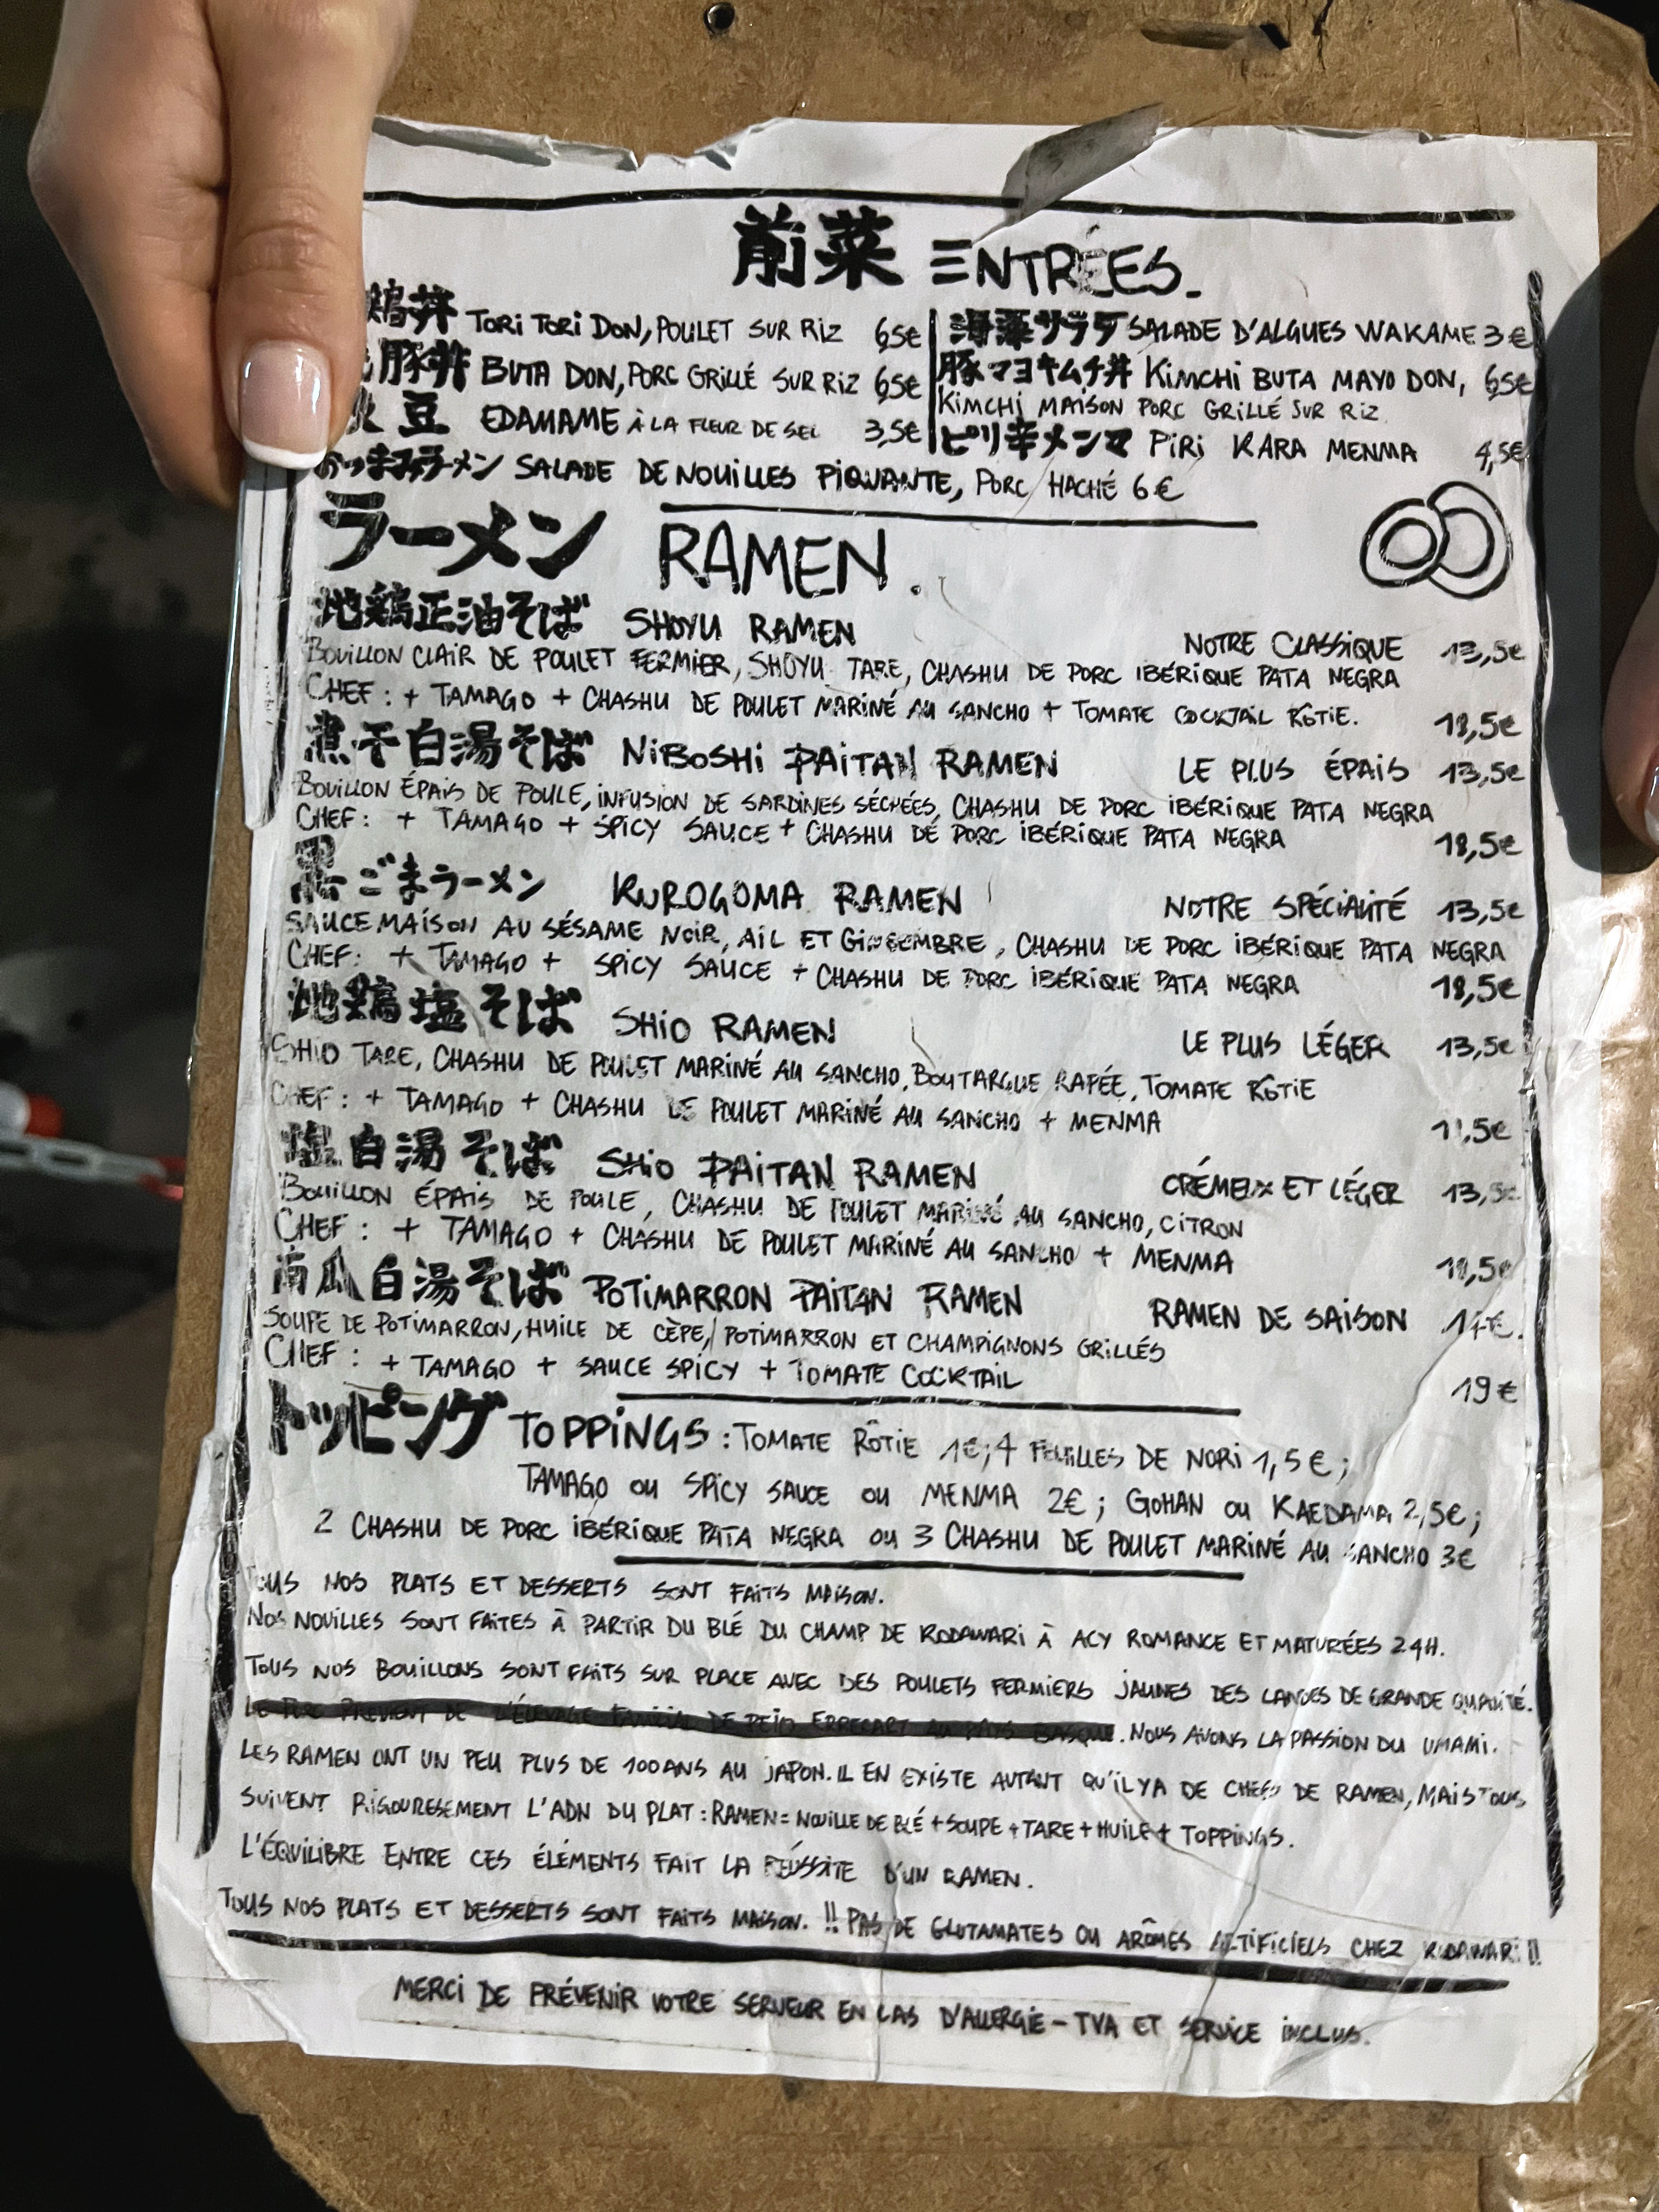 前菜 ENTRÉES.
鶏丼 TORI TORI DON, POULET SUR RIZ 6,5€
豚丼 BUTA DON, PORC GRILLÉ SUR RIZ 6,5€
豆 EDAMAME À LA FLEUR DE SEL 3,5€
海藻サラダ SALADE D'ALGUES WAKAME 3€
豚マヨキムチ丼 KIMCHI BUTA MAYO DON, 6,5€
KIMCHI MAISON PORC GRILLÉ SUR RIZ
ピリ辛メンマ PIRI KARA MENMA 4,5€
おつまみラーメン SALADE DE NOUILLES PIQUANTE, PORC HACHÉ 6€
ラーメン RAMEN.
地鶏正油そば SHOYU RAMEN NOTRE CLASSIQUE 13,5€
BOUILLON CLAIR DE POULET FERMIER, SHOYU TARE, CHASHU DE PORC IBÉRIQUE PATA NEGRA
CHEF : + TAMAGO + CHASHU DE POULET MARINÉ AU SANCHO + TOMATE COCKTAIL RÔTIE. 18,5€
煮干白湯そば NIBOSHI PAITAN RAMEN LE PLUS ÉPAIS 13,5€
BOUILLON ÉPAIS DE POULE, INFUSION DE SARDINES SÉCHÉES, CHASHU DE PORC IBÉRIQUE PATA NEGRA
CHEF : + TAMAGO + SPICY SAUCE + CHASHU DE PORC IBÉRIQUE PATA NEGRA 18,5€
黒ごまラーメン KUROGOMA RAMEN NOTRE SPÉCIALITÉ 13,5€
SAUCE MAISON AU SÉSAME NOIR, AIL ET GINGEMBRE, CHASHU DE PORC IBÉRIQUE PATA NEGRA
CHEF : + TAMAGO + SPICY SAUCE + CHASHU DE PORC IBÉRIQUE PATA NEGRA 18,5€
地鶏塩そば SHIO RAMEN LE PLUS LÉGER 13,5€
SHIO TARE, CHASHU DE POULET MARINÉ AU SANCHO, BOUTARGUE RAPÉE, TOMATE RÔTIE
CHEF : + TAMAGO + CHASHU DE POULET MARINÉ AU SANCHO + MENMA
塩白湯そば SHIO PAITAN RAMEN CRÉMEUX ET LÉGER 13,5€
BOUILLON ÉPAIS DE POULE, CHASHU DE POULET MARINÉ AU SANCHO, CITRON
CHEF : + TAMAGO + CHASHU DE POULET MARINÉ AU SANCHO + MENMA 18,5€
南瓜白湯そば POTIMARRON PAITAN RAMEN RAMEN DE SAISON 14€.
SOUPE DE POTIMARRON, HUILE DE CÈPE, POTIMARRON ET CHAMPIGNONS GRILLÉS
CHEF : + TAMAGO + SAUCE SPICY + TOMATE COCKTAIL 19€
トッピング TOPPINGS : TOMATE RÔTIE 1€; 4 FEUILLES DE NORI 1,5€;
TAMAGO OU SPICY SAUCE OU MENMA 2€; GOHAN OU KAEDAMA 2,5€;
2 CHASHU DE PORC IBÉRIQUE PATA NEGRA OU 3 CHASHU DE POULET MARINÉ AU SANCHO 3€
TOUS NOS PLATS ET DESSERTS SONT FAITS MAISON.
NOS NOUILLES SONT FAITES À PARTIR DU BLÉ DU CHAMP DE KODAWARI À ACY ROMANCE ET MATURÉES 24H.
TOUS NOS BOUILLONS SONT FAITS SUR PLACE AVEC DES POULETS FERMIERS JAUNES DES LANDES DE GRANDE QUALITÉ.
LE PORC PROVIENT DE L'ÉLEVAGE FAMILIAL DE PEIO ERRECART AU PAYS BASQUE. NOUS AVONS LA PASSION DU UMAMI.
LES RAMEN ONT UN PEU PLUS DE 100 ANS AU JAPON. IL EN EXISTE AUTANT QU'IL Y A DE CHEFS DE RAMEN, MAIS TOUS
SUIVENT RIGOURESEMENT L'ADN DU PLAT : RAMEN = NOUILLE DE BLÉ + SOUPE + TARE + HUILE + TOPPINGS.
L'ÉQUILIBRE ENTRE CES ÉLÉMENTS FAIT LA RÉUSSITE D'UN RAMEN.
TOUS NOS PLATS ET DESSERTS SONT FAITS MAISON. !! PAS DE GLUTAMATES OU ARÔMES ARTIFICIELS CHEZ KODAWARI !!
MERCI DE PRÉVENIR VOTRE SERVEUR EN CAS D'ALLERGIE - TVA ET SERVICE INCLUS.